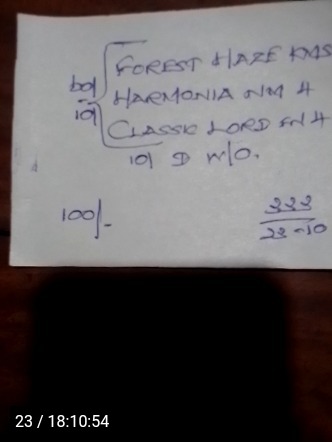 FOREST HAZE KMS
HARMONIA NM 4
CLASSIC LORD SN 4
101 D W/O.
100/-
333
23-10
23 / 18:10:54